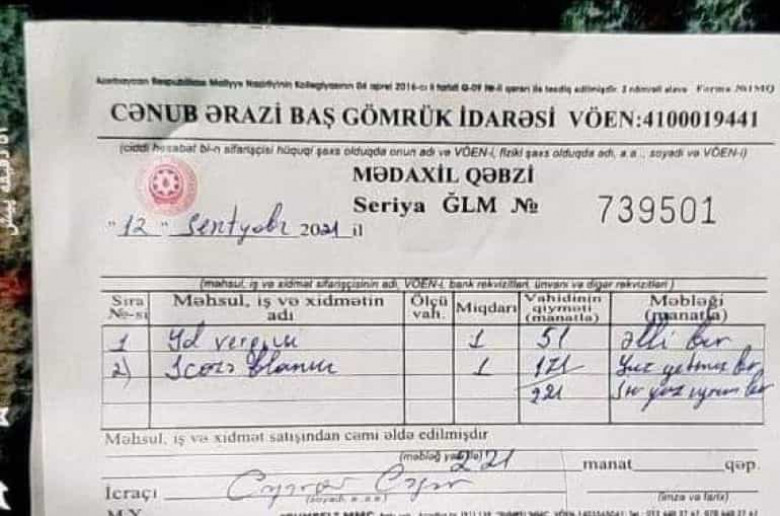 Azərbaycan Respublikası Maliyyə Nazirliyinin Kollegiyasının 04 aprel 2016-cı il tarixli Q-09 №-li qərarı ilə təsdiq edilmişdir. 3 nömrəli əlavə Forma №1MQ
CƏNUB ƏRAZİ BAŞ GÖMRÜK İDARƏSİ VÖEN:4100019441
(ciddi hesabat bl-n sifarişçisi hüquqi şəxs olduqda onun adı və VÖEN-i, fiziki şəxs olduqda adı, a.a., soyadı və VÖEN-i)
MƏDAXİL QƏBZİ
Seriya ĞLM № 739501
"12" Sentyabr 2021 il
(məhsul, iş və xidmət sifarişçisinin adı, VÖEN-i, bank rekvizitləri, ünvanı və digər rekvizitləri)
Sıra №-si Məhsul, iş və xidmətin adı Ölçü vah. Miqdarı Vahidinin qiyməti (manatla) Məbləği (manatla)
1 Yol vergisi 1 51 Əlli bir
2) İcazə blankı 1 171 Yüz yetmiş bir
221 İki yüz iyirmi bir
Məhsul, iş və xidmət satışından cəmi əldə edilmişdir
(məbləğ yazılır) 221 manat qəp.
İcraçı
(soyadı, a.a.a) (imza və tarix)
M.Y.